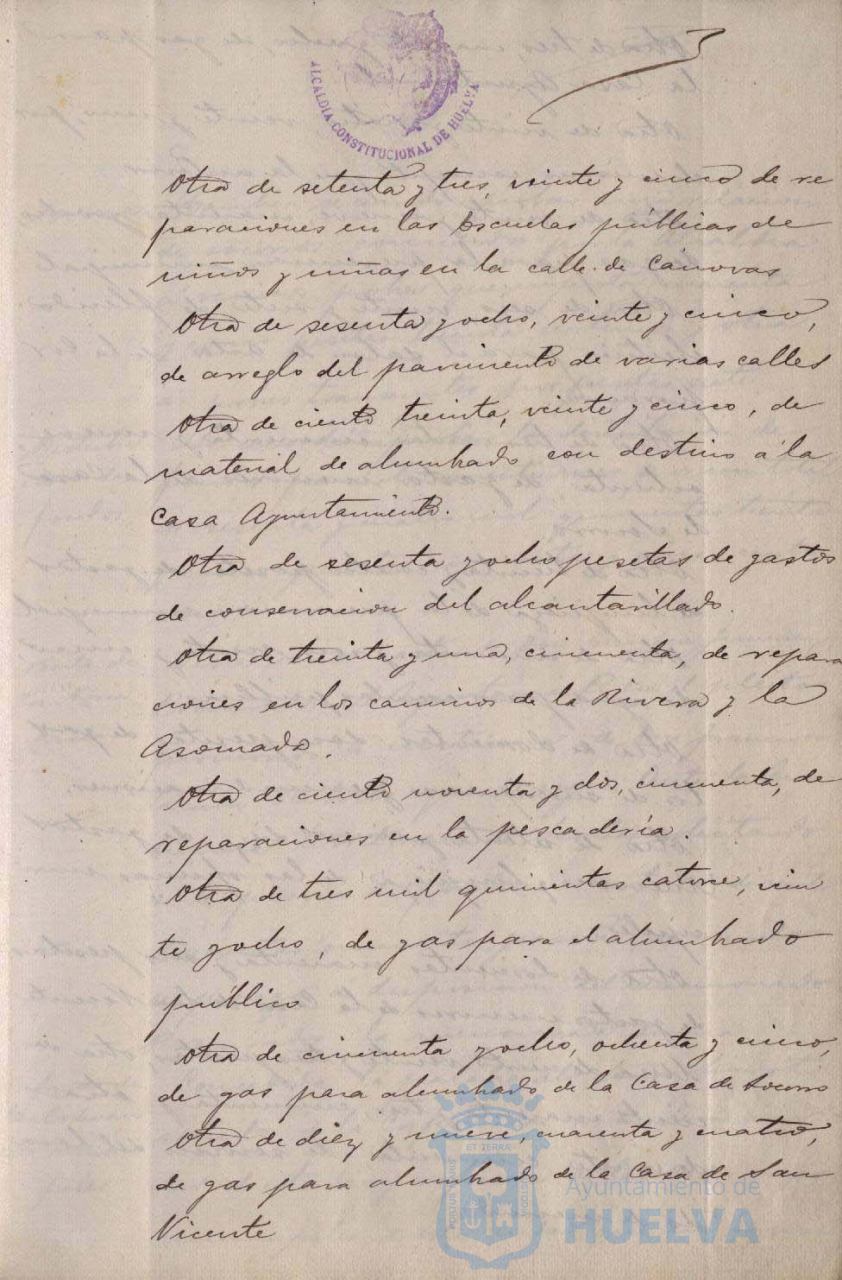 3
ALCALDIA CONSTITUCIONAL DE HUELVA
Otra de setenta y tres, veinte y cinco de re
paraciones en las Escuelas públicas de
niños y niñas en la calle de Cánovas
Otra de sesenta y ocho, veinte y cinco,
de arreglo del pavimento de varias calles
Otra de ciento treinta, veinte y cinco, de
material de alumbrado con destino á la
Casa Ayuntamiento.
Otra de sesenta y ocho pesetas de gastos
de conservacion del alcantarillado.
Otra de treinta y una, cincuenta, de repara
ciones en los caminos de la Rivera y la
Asomada.
Otra de ciento noventa y dos, cincuenta, de
reparaciones en la pescadería.
Otra de tres mil quinientas catorce, vein
te y ocho, de gas para el alumbrado
público
Otra de cincuenta y ocho, ochenta y cinco,
de gas para alumbrado de la Casa de Socorro
Otra de diez y nueve, cuarenta y cuatro,
de gas para alumbrado de la Casa de San
Vicente
PORTUS MARIS ET TERRAE CUSTODIA
Ayuntamiento de
HUELVA